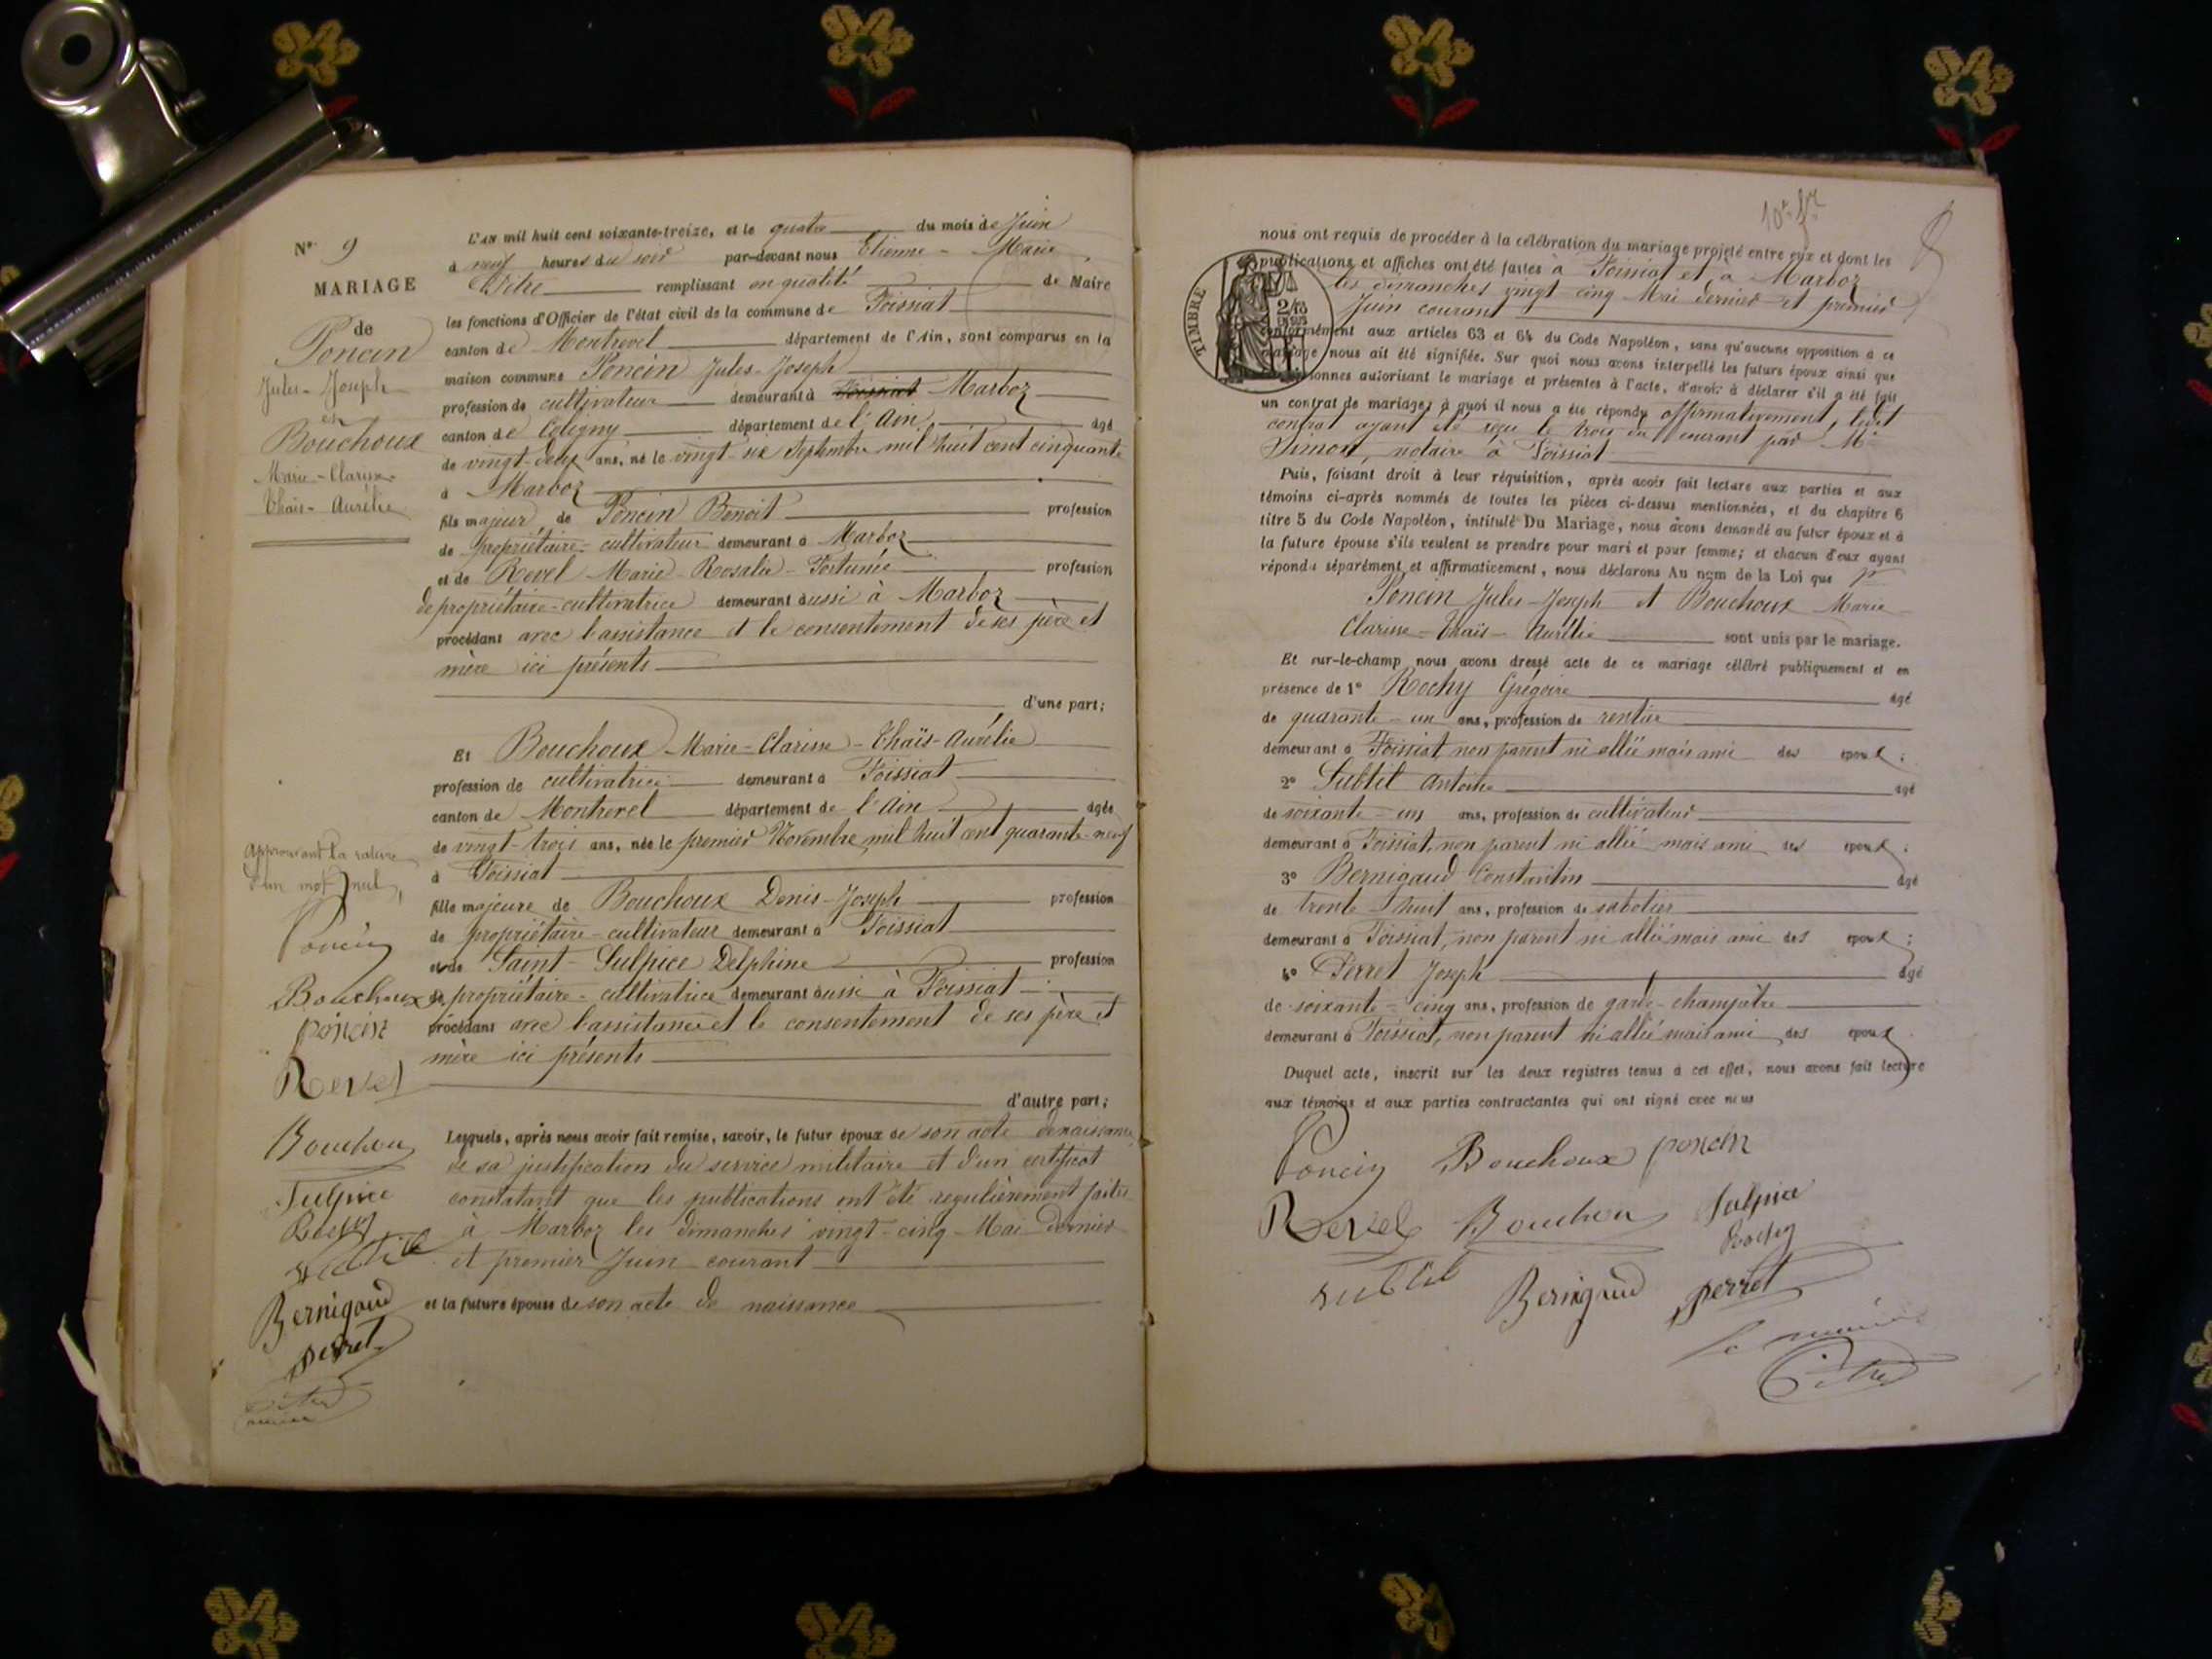 N° 9
MARIAGE
de
Poncin
Jules-Joseph
et
Bouchoux
Marie-Clarisse-
Thaïs-Aurélie
L'AN mil huit cent soixante-treize, et le quatre du mois de Juin
à neuf heures du soir par-devant nous Etienne-Marie
remplissant en qualité de Maire
les fonctions d'Officier de l'état civil de la commune de Foissiat
canton de Montrevel département de l'Ain, sont comparus en la
maison commune Poncin Jules-Joseph
profession de cultivateur demeurant à Foissiat Marboz
canton de Coligny département de l'Ain, âgé
de vingt-deux ans, né le vingt-six Septembre mil huit cent cinquante
à Marboz
fils majeur de Poncin Benoit profession
de propriétaire-cultivateur demeurant à Marboz
et de Revel Marie-Rosalie-Fortunée profession
de propriétaire-cultivatrice demeurant aussi à Marboz
procédant avec l'assistance et le consentement de ses père et
mère ici présents
d'une part;
Et Bouchoux Marie-Clarisse-Thaïs-Aurélie
profession de cultivatrice demeurant à Foissiat
canton de Montrevel département de l'Ain âgée
de vingt-trois ans, née le premier Novembre mil huit cent quarante-neuf
à Foissiat
fille majeure de Bouchoux Denis-Joseph profession
de propriétaire-cultivateur demeurant à Foissiat
et de Saint-Sulpice Delphine profession
de propriétaire-cultivatrice demeurant aussi à Foissiat
procédant avec l'assistance et le consentement de ses père et
mère ici présents
d'autre part;
Lesquels, après nous avoir fait remise, savoir, le futur époux de son acte de naissance,
de sa justification du service militaire et d'un certificat
constatant que les publications ont été regulièrement faites
à Marboz les dimanches vingt-cinq Mai dernier
et premier Juin courant
et la future épouse de son acte de naissance
Approuvant la rature
d'un mot nul,
Poncin
Bouchoux
poncin
Revel
Bouchou
Sulpice
Rochy
subtil
Bernigaud
perret
10e ft
nous ont requis de procéder à la célébration du mariage projeté entre eux et dont les
publications et affiches ont été faites à Foissiat et à Marboz
les dimanches vingt-cinq Mai dernier et premier
Juin courant
TIMBRE
conformément aux articles 63 et 64 du Code Napoléon, sans qu'aucune opposition à ce
mariage nous ait été signifiée. Sur quoi nous avons interpellé les futurs époux ainsi que
personnes autorisant le mariage et présentes à l'acte, d'avoir à déclarer s'il a été fait
un contrat de mariage; à quoi il nous a été répondu affirmativement, ledit
contrat ayant été reçu le trois du courant par Me
Simon, notaire à Foissiat
Puis, faisant droit à leur réquisition, après avoir fait lecture aux parties et aux
témoins ci-après nommés de toutes les pièces ci-dessus mentionnées, et du chapitre 6
titre 5 du Code Napoléon, intitulé Du Mariage, nous avons demandé au futur époux et à
la future épouse s'ils veulent se prendre pour mari et pour femme; et chacun d'eux ayant
répondu séparément et affirmativement, nous déclarons Au nom de la Loi que
Poncin Jules-Joseph et Bouchoux Marie-
Clarisse-Thaïs-Aurélie sont unis par le mariage.
Et sur-le-champ nous avons dressé acte de ce mariage célébré publiquement et en
présence de 1° Rochy Grégoire âgé
de quarante-un ans, profession de rentier
demeurant à Foissiat, non parent ni allié mais ami des époux;
2° Subtil Antoine âgé
de soixante-un ans, profession de cultivateur
demeurant à Foissiat, non parent ni allié mais ami des époux;
3° Bernigaud Constantin âgé
de trente-huit ans, profession de sabotier
demeurant à Foissiat, non parent ni allié mais ami des époux;
4° Perret Joseph âgé
de soixante-cinq ans, profession de garde-champêtre
demeurant à Foissiat, non parent ni allié mais ami des époux
Duquel acte, inscrit sur les deux registres tenus à cet effet, nous avons fait lecture
aux témoins et aux parties contractantes qui ont signé avec nous
Poncin Bouchoux poncin
Revel Bouchou Sulpice
Rochy
subtil Bernigaud perret
le maire